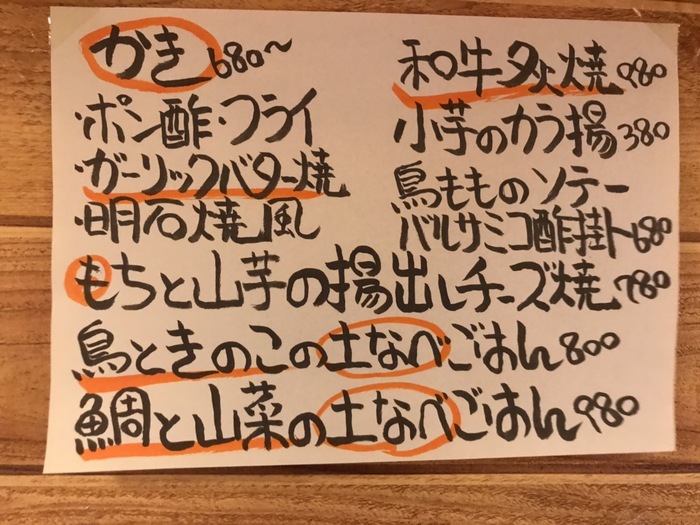 かき 680〜
・ポン酢・フライ
・ガーリックバター焼
・明石焼風
和牛タタキ焼 980
小芋のカラ揚 380
鳥もものソテー
バルサミコ酢掛ト 680
もちと山芋の揚出しチーズ焼 780
鳥ときのこの土なべごはん 800
鯛と山菜の土なべごはん 980